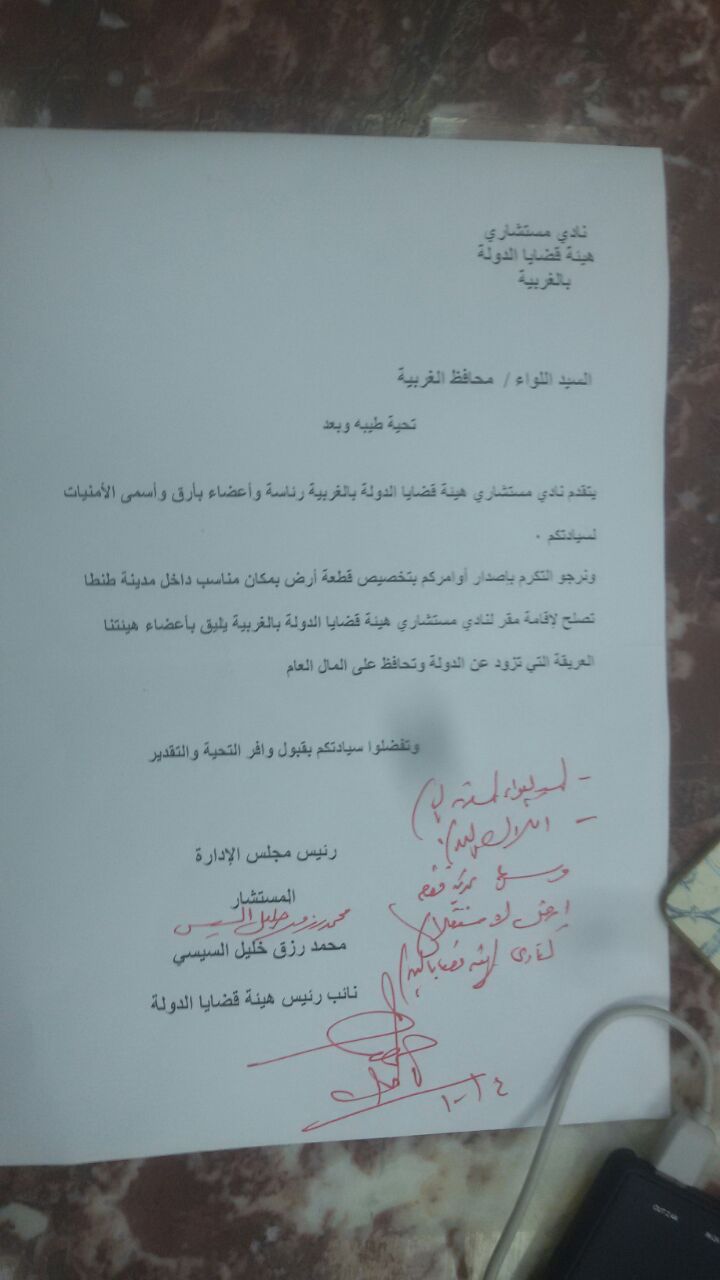 نادي مستشاري
هيئة قضايا الدولة
بالغربية
السيد اللواء / محافظ الغربية
تحية طيبه وبعد
يتقدم نادي مستشاري هيئة قضايا الدولة بالغربية رئاسة وأعضاء بأرق وأسمى الأمنيات
لسيادتكم ٠
ونرجو التكرم بإصدار أوامركم بتخصيص قطعة أرض بمكان مناسب داخل مدينة طنطا
تصلح لإقامة مقر لنادي مستشاري هيئة قضايا الدولة بالغربية يليق بأعضاء هيئتنا
العريقة التي تزود عن الدولة وتحافظ على المال العام
وتفضلوا سيادتكم بقبول وافر التحية والتقدير
رئيس مجلس الإدارة
المستشار
محمد رزق خليل السيسي
محمد رزق خليل السيسي
نائب رئيس هيئة قضايا الدولة
لنادى هيئة قضايا